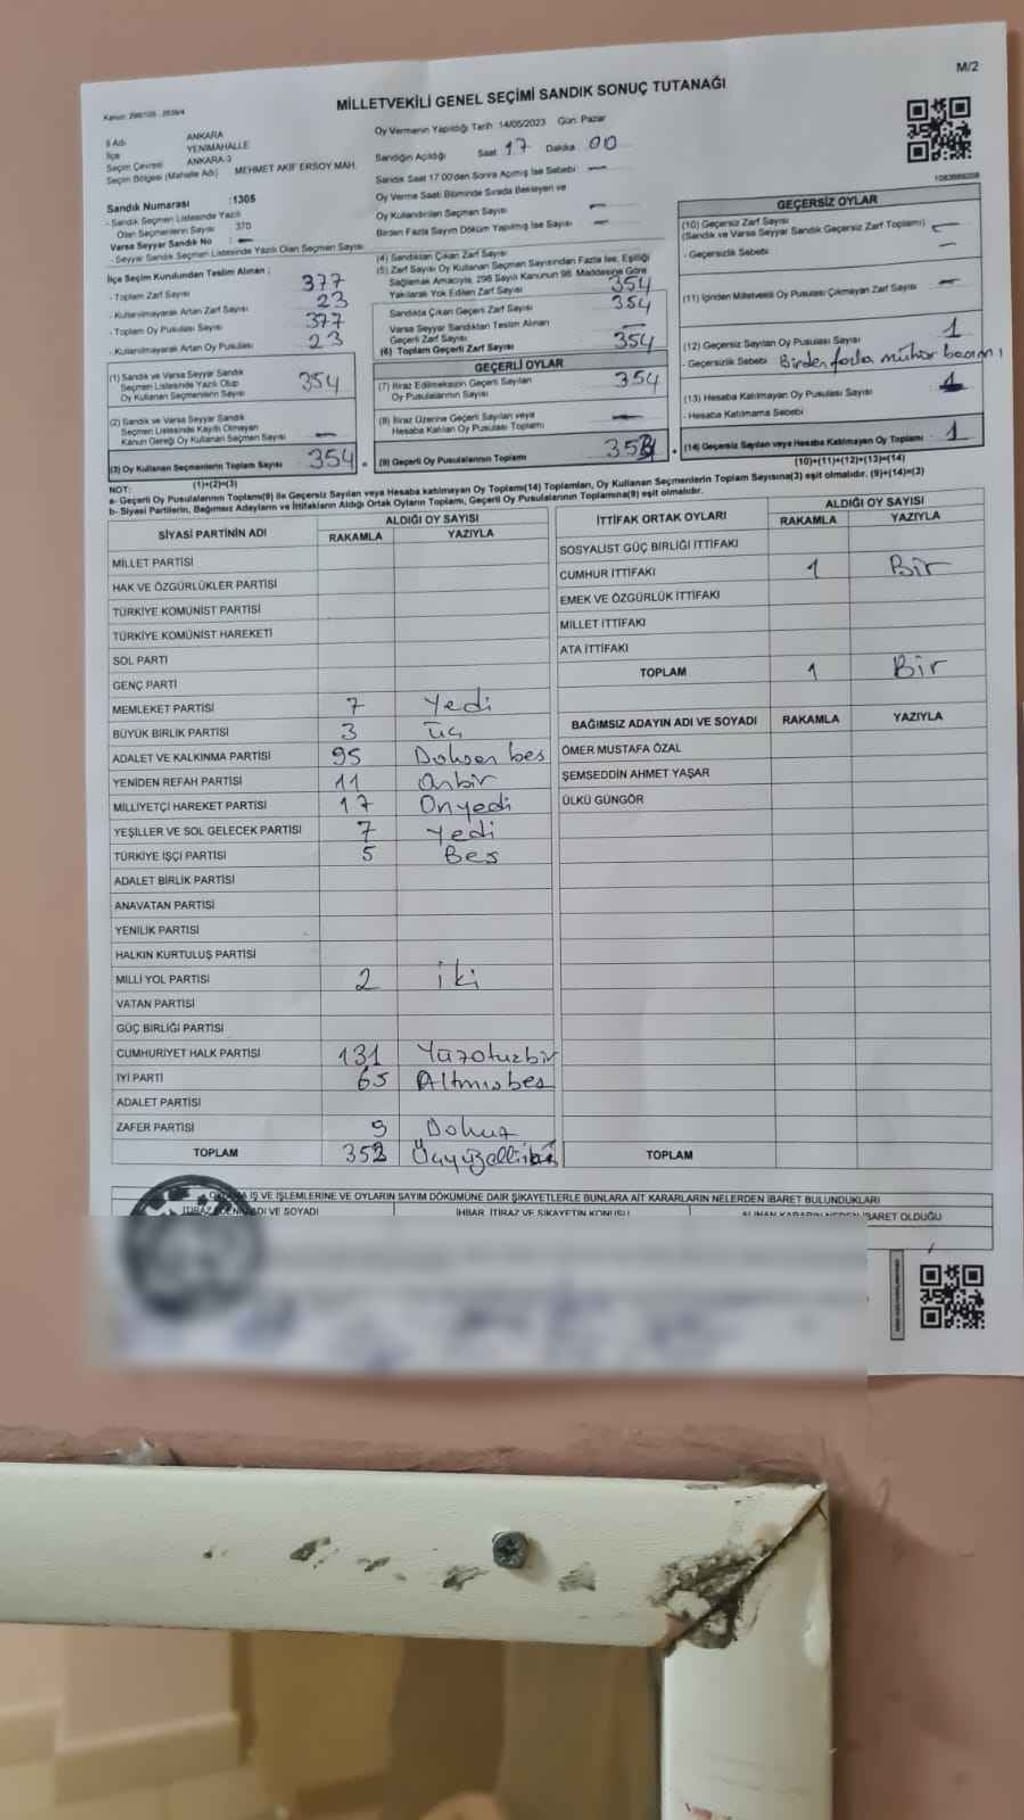 M/2
Kanun: 298/105 - 2839/4
MİLLETVEKİLİ GENEL SEÇİMİ SANDIK SONUÇ TUTANAĞI
İl Adı ANKARA
İlçe YENİMAHALLE
Seçim Çevresi ANKARA-3
Seçim Bölgesi (Mahalle Adı) MEHMET AKİF ERSOY MAH.
Sandık Numarası :1305
- Sandık Seçmen Listesinde Yazılı
Olan Seçmenlerin Sayısı 370
Varsa Seyyar Sandık No : —
- Seyyar Seçmen Listesinde Yazılı Olan Seçmen Sayısı
Oy Vermenin Yapıldığı Tarih :14/05/2023 Gün: Pazar
Sandığın Açıldığı Saat 17 Dakika 00
Sandık Saat 17:00'den Sonra Açılmış İse Sebebi: —
Oy Verme Saati Bitiminde Sırada Bekleyen ve
Oy Kullandırılan Seçmen Sayısı —
Birden Fazla Sayım Döküm Yapılmış İse Sayısı —
İlçe Seçim Kurulundan Teslim Alınan :
- Toplam Zarf Sayısı 377
- Kullanılmayarak Artan Zarf Sayısı 23
- Toplam Oy Pusulası Sayısı 377
- Kullanılmayarak Artan Oy Pusulası 23
(1) Sandık ve Varsa Seyyar Sandık
Seçmen Listesinde Yazılı Olup
Oy Kullanan Seçmenlerin Sayısı 354
(2) Sandık ve Varsa Seyyar Sandık
Seçmen Listesinde Kayıtlı Olmayan
Kanun Gereği Oy Kullanan Seçmen Sayısı —
(3) Oy Kullanan Seçmenlerin Toplam Sayısı 354
(1)+(2)=(3)
(4) Sandıktan Çıkan Zarf Sayısı
(5) Zarf Sayısı Oy Kullanan Seçmen Sayısından Fazla İse, Eşitliği
Sağlamak Amacıyla, 298 Sayılı Kanunun 98. Maddesine Göre
Yakılarak Yok Edilen Zarf Sayısı 354
Sandıkta Çıkan Geçerli Zarf Sayısı 354
Varsa Seyyar Sandıktan Teslim Alınan
Geçerli Zarf Sayısı —
(6) Toplam Geçerli Zarf Sayısı 354
GEÇERLİ OYLAR
(7) İtiraz Edilmeksizin Geçerli Sayılan
Oy Pusulalarının Sayısı 354
(8) İtiraz Üzerine Geçerli Sayılan veya
Hesaba Katılan Oy Pusulası Toplamı —
(9) Geçerli Oy Pusulalarının Toplamı 353
GEÇERSİZ OYLAR
(10) Geçersiz Zarf Sayısı
(Sandık ve Varsa Seyyar Sandık Geçersiz Zarf Toplamı) —
- Geçersizlik Sebebi —
(11) İçinden Milletvekili Oy Pusulası Çıkmayan Zarf Sayısı —
(12) Geçersiz Sayılan Oy Pusulası Sayısı 1
- Geçersizlik Sebebi Birden fazla mühür basımı
(13) Hesaba Katılmayan Oy Pusulası Sayısı
- Hesaba Katılmama Sebebi
(14) Geçersiz Sayılan veya Hesaba Katılmayan Oy Toplamı 1
(10)+(11)+(12)+(13)=(14)
NOT:
a- Geçerli Oy Pusulalarının Toplamı(9) ile Geçersiz Sayılan veya Hesaba katılmayan Oy Toplamı(14) Toplamları, Oy Kullanan Seçmenlerin Toplam Sayısına(3) eşit olmalıdır. (9)+(14)=(3)
b- Siyasi Partilerin, Bağımsız Adayların ve İttifakların Aldığı Ortak Oyların Toplamı, Geçerli Oy Pusulalarının Toplamına(9) eşit olmalıdır.
SİYASİ PARTİNİN ADI ALDIĞI OY SAYISI
RAKAMLA YAZIYLA
MİLLET PARTİSİ
HAK VE ÖZGÜRLÜKLER PARTİSİ
TÜRKİYE KOMÜNİST PARTİSİ
TÜRKİYE KOMÜNİST HAREKETİ
SOL PARTİ
GENÇ PARTİ
MEMLEKET PARTİSİ 7 Yedi
BÜYÜK BİRLİK PARTİSİ 3 Üç
ADALET VE KALKINMA PARTİSİ 95 Doksan beş
YENİDEN REFAH PARTİSİ 11 Onbir
MİLLİYETÇİ HAREKET PARTİSİ 17 Onyedi
YEŞİLLER VE SOL GELECEK PARTİSİ 7 Yedi
TÜRKİYE İŞÇİ PARTİSİ 5 Beş
ADALET BİRLİK PARTİSİ
ANAVATAN PARTİSİ
YENİLİK PARTİSİ
HALKIN KURTULUŞ PARTİSİ
MİLLİ YOL PARTİSİ 2 iki
VATAN PARTİSİ
GÜÇ BİRLİĞİ PARTİSİ
CUMHURİYET HALK PARTİSİ 131 Yüzotuzbir
İYİ PARTİ 65 Altmışbeş
ADALET PARTİSİ
ZAFER PARTİSİ 9 Dokuz
TOPLAM 352 Üçyüzelliiki
İTTİFAK ORTAK OYLARI ALDIĞI OY SAYISI
RAKAMLA YAZIYLA
SOSYALİST GÜÇ BİRLİĞİ İTTİFAKI
CUMHUR İTTİFAKI 1 Bir
EMEK VE ÖZGÜRLÜK İTTİFAKI
MİLLET İTTİFAKI
ATA İTTİFAKI
TOPLAM 1 Bir
BAĞIMSIZ ADAYIN ADI VE SOYADI RAKAMLA YAZIYLA
ÖMER MUSTAFA ÖZAL
ŞEMSEDDİN AHMET YAŞAR
ÜLKÜ GÜNGÖR
TOPLAM
İŞ VE İŞLEMLERİNE VE OYLARIN SAYIM DÖKÜMÜNE DAİR ŞİKAYETLERLE BUNLARA AİT KARARLARIN NELERDEN İBARET BULUNDUKLARI
ADI VE SOYADI İHBAR, İTİRAZ VE ŞİKAYETİN KONUSU ALINAN KARARIN NEDEN İBARET OLDUĞU